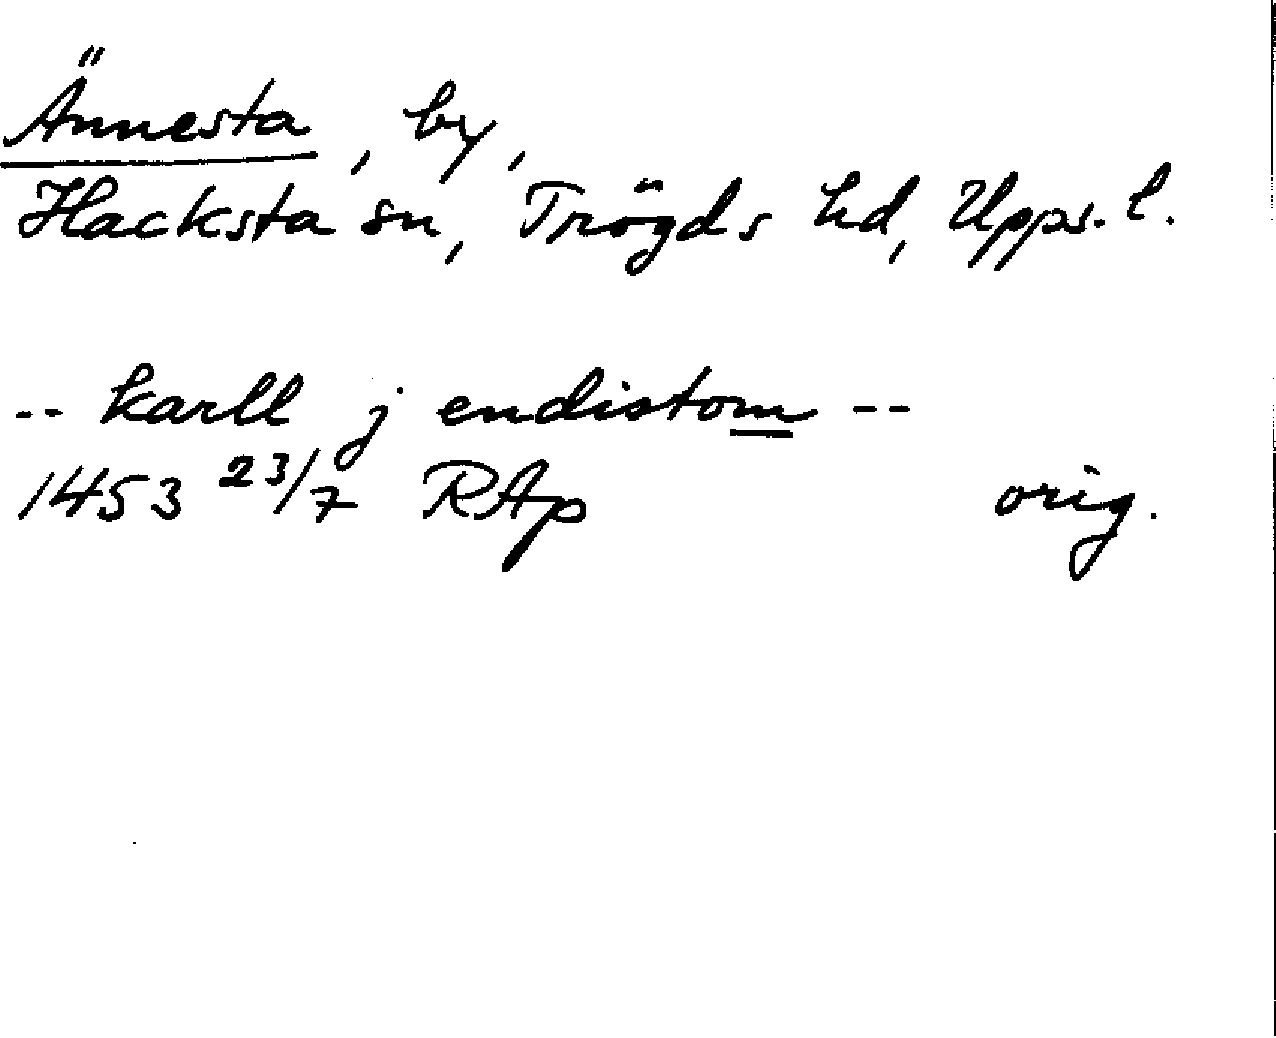 Ännesta, by,
Hacksta sn, Trögds hd, Upps. l.
-- karll j endistom --
1453 23/7 RAp orig.